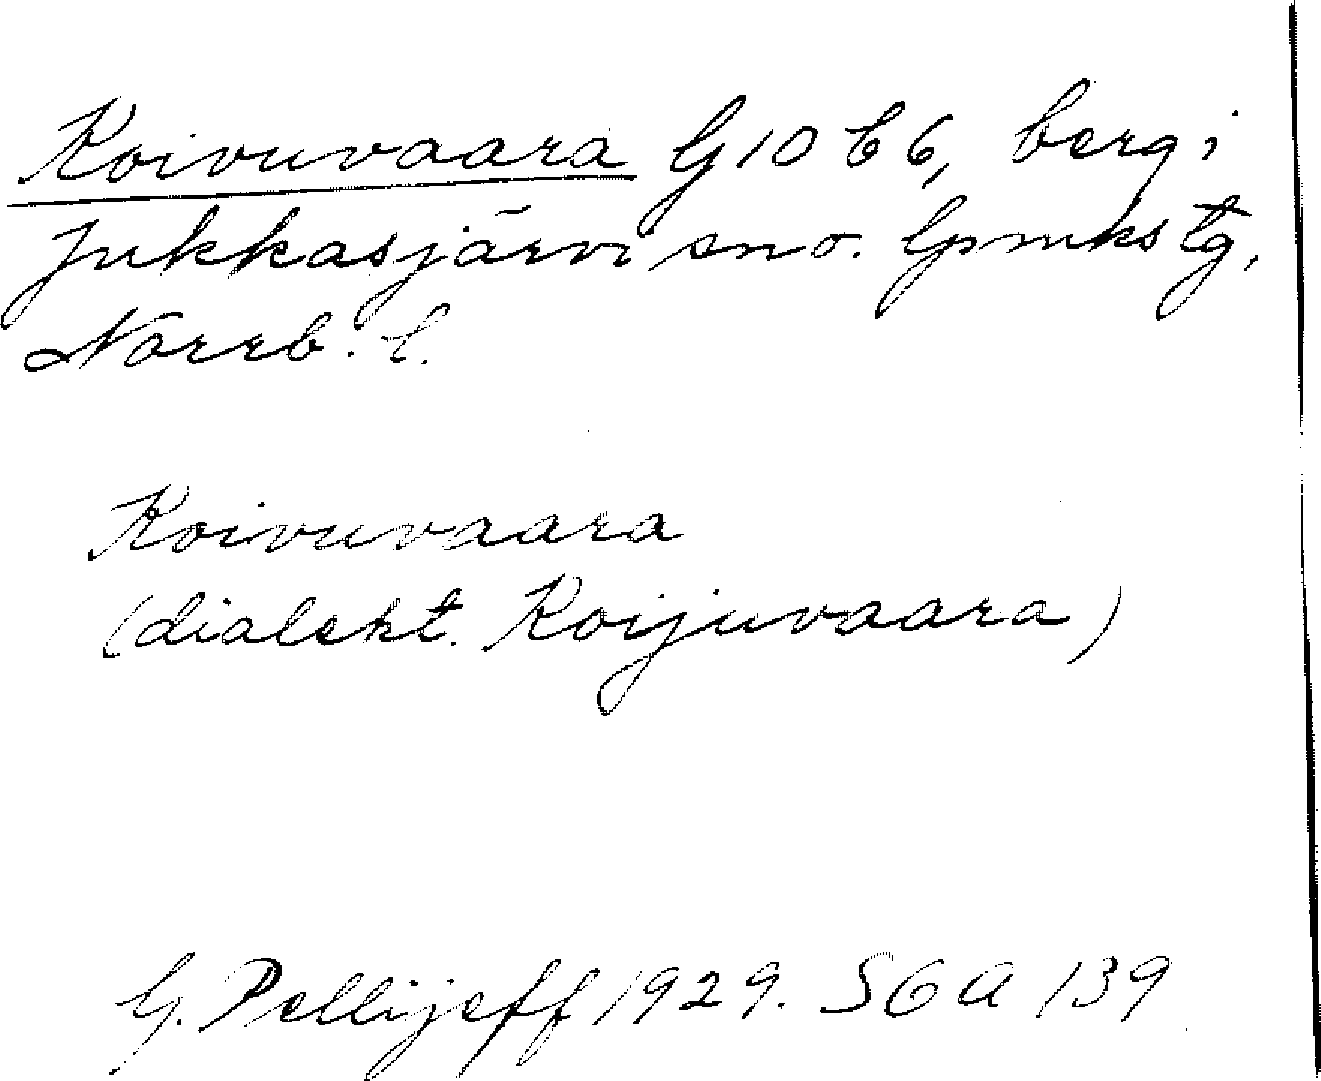 Koivuvaara G 10 b 6, berg i
Jukkasjärvi sn o. lpmkstg,
Norrb. l.
Koivuvaara
(dialekt. Koijuvaara)
G. Pellijeff 1929. SGA 139